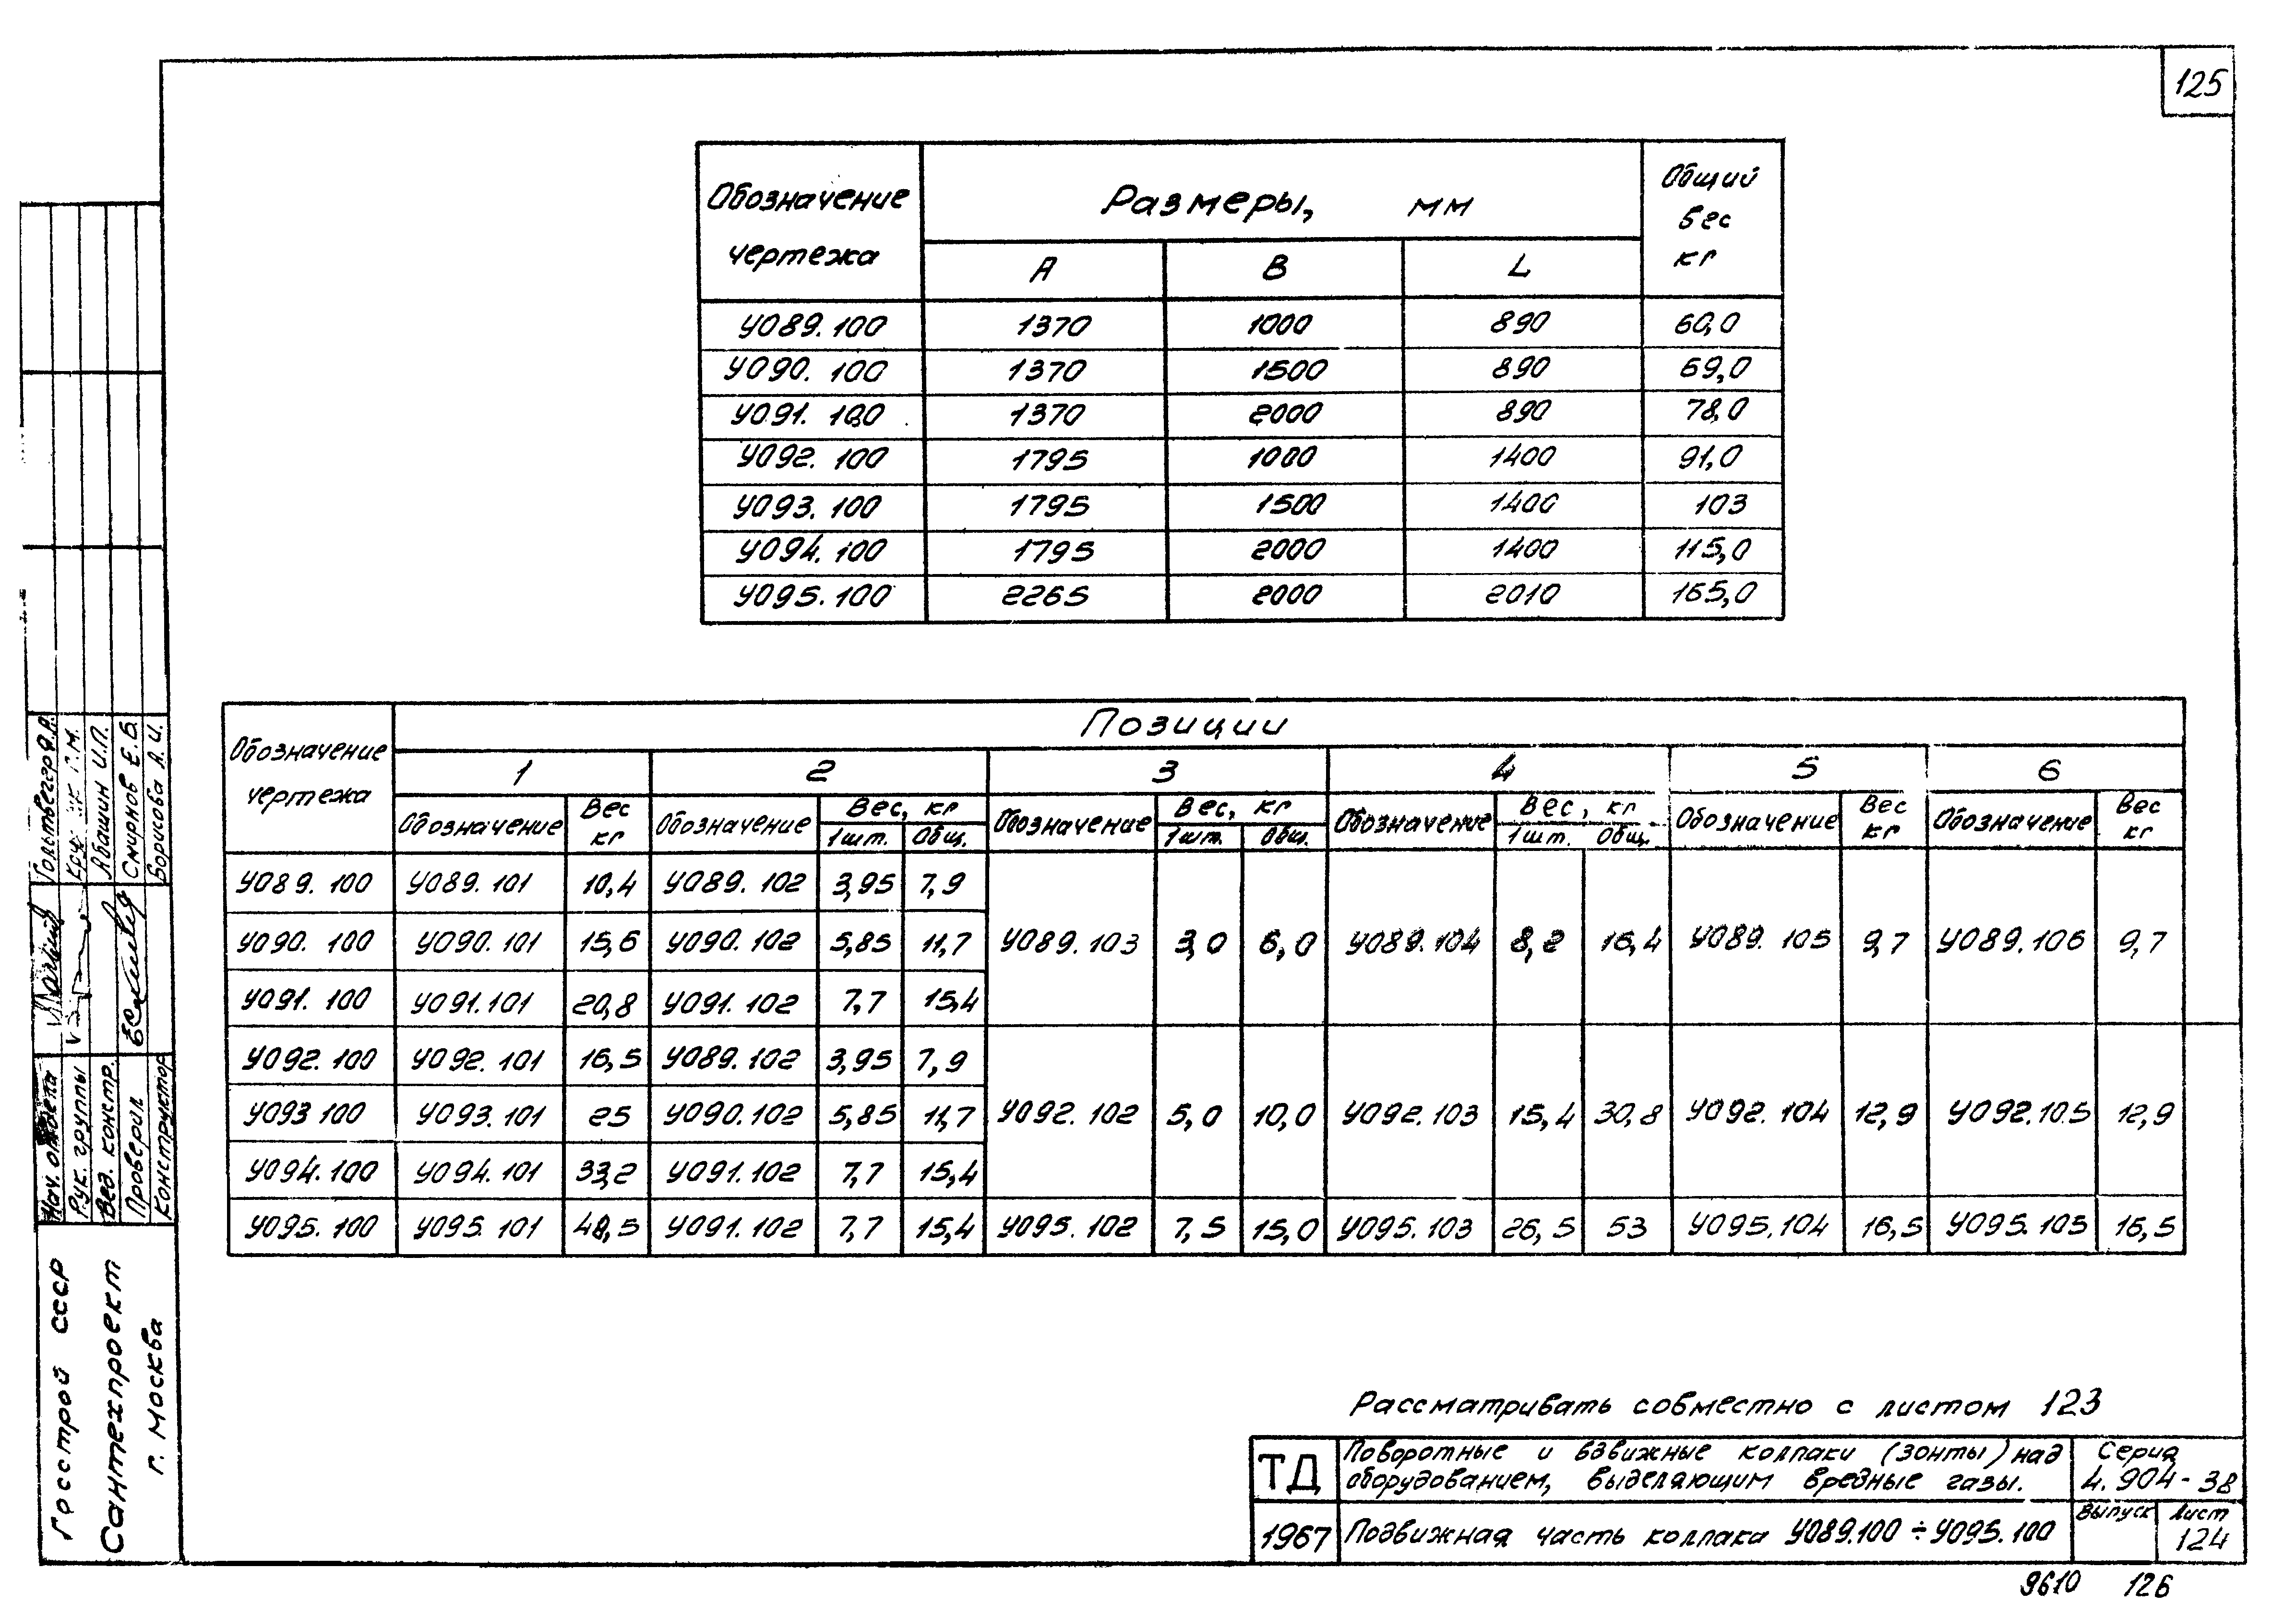 125
Обозначение чертежа | Размеры, мм | Общий вес кг
А | В | L
У089.100 | 1370 | 1000 | 890 | 60,0
У090.100 | 1370 | 1500 | 890 | 69,0
У091.100 | 1370 | 2000 | 890 | 78,0
У092.100 | 1795 | 1000 | 1400 | 91,0
У093.100 | 1795 | 1500 | 1400 | 103
У094.100 | 1795 | 2000 | 1400 | 115,0
У095.100 | 2265 | 2000 | 2010 | 165,0
Обозначение чертежа | Позиции
1 | 2 | 3 | 4 | 5 | 6
Обозначение | Вес кг | Обозначение | Вес, кг | Обозначение | Вес, кг | Обозначение | Вес, кг | Обозначение | Вес кг | Обозначение | Вес кг
1шт. | Общ. | 1шт. | Общ. | 1шт. | Общ.
У089.100 | У089.101 | 10,4 | У089.102 | 3,95 | 7,9
У090.100 | У090.101 | 15,6 | У090.102 | 5,85 | 11,7 | У089.103 | 3,0 | 6,0 | У089.104 | 8,2 | 16,4 | У089.105 | 9,7 | У089.106 | 9,7
У091.100 | У091.101 | 20,8 | У091.102 | 7,7 | 15,4
У092.100 | У092.101 | 16,5 | У089.102 | 3,95 | 7,9
У093 100 | У093.101 | 25 | У090.102 | 5,85 | 11,7 | У092.102 | 5,0 | 10,0 | У092.103 | 15,4 | 30,8 | У092.104 | 12,9 | У092.105 | 12,9
У094.100 | У094.101 | 33,2 | У091.102 | 7,7 | 15,4
У095.100 | У095.101 | 48,5 | У091.102 | 7,7 | 15,4 | У095.102 | 7,5 | 15,0 | У095.103 | 26,5 | 53 | У095.104 | 16,5 | У095.105 | 16,5
Рассматривать совместно с листом 123
ТД
Поворотные и вдвижные колпаки (зонты) над
оборудованием, выделяющим вредные газы.
Серия
4.904-38
1967
Подвижная часть колпака У089.100 ÷ У095.100
Выпуск
Лист
124
9610 126
Нач. отдела
Рук. группы
Г.М.
Вед. констр.
Абашин И.П.
Проверил
Смирнов Е.Б.
Конструктор
Борисова А.И.
Госстрой СССР
Сантехпроект
г. Москва